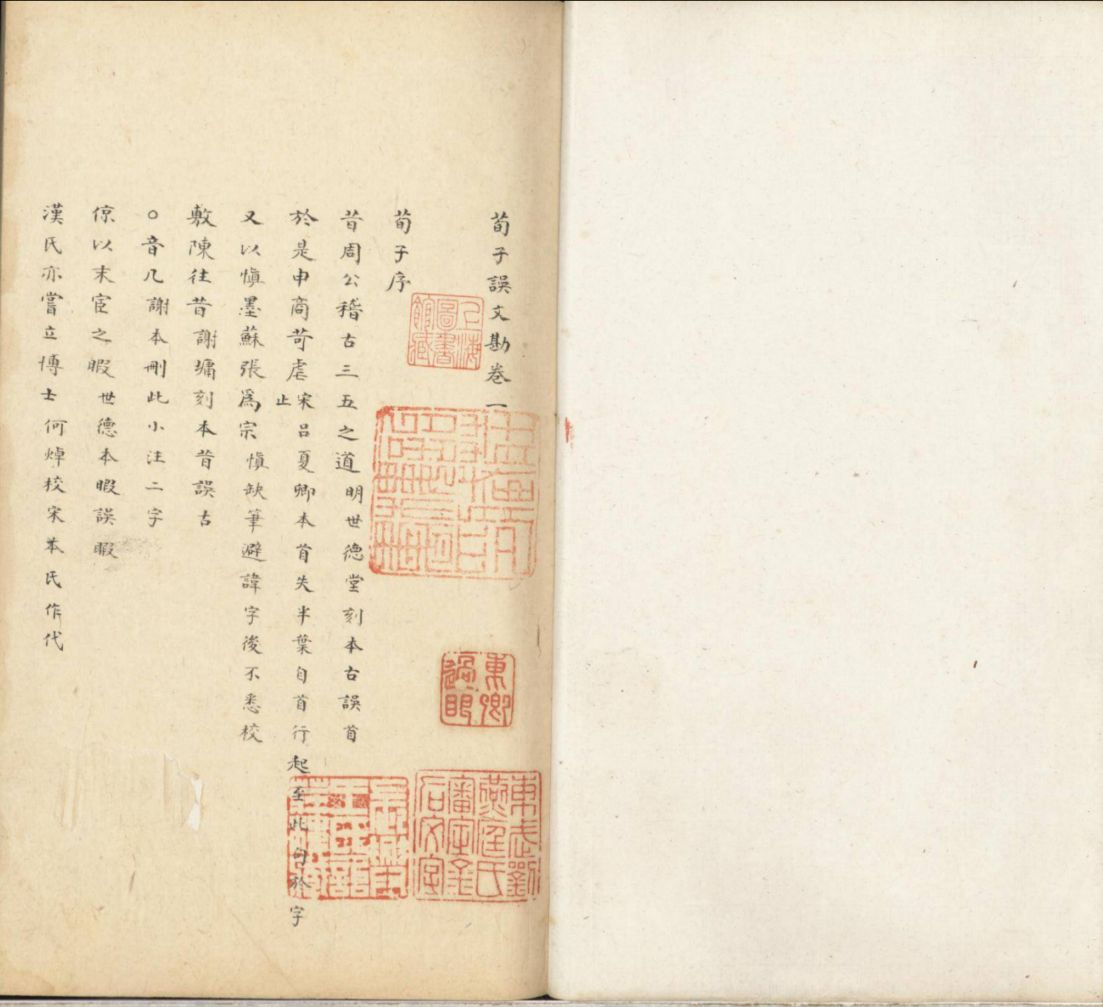 荀子誤文勘卷一
荀子序
昔周公稽古三五之道明世德堂刻本古誤首
於是申商苛虐宋呂夏卿本首失半葉自首行起至此句於字
止
又以愼墨蘇張爲宗愼缺筆避諱字後不悉校
敷陳往昔謝墉刻本昔誤古
○音几謝本刪此小注二字
倞以末宦之暇世德本暇誤睱
漢氏亦嘗立博士何焯校宋本氏作代
上海圖書館藏
東卿過眼
東武劉燕庭氏審定金石文字